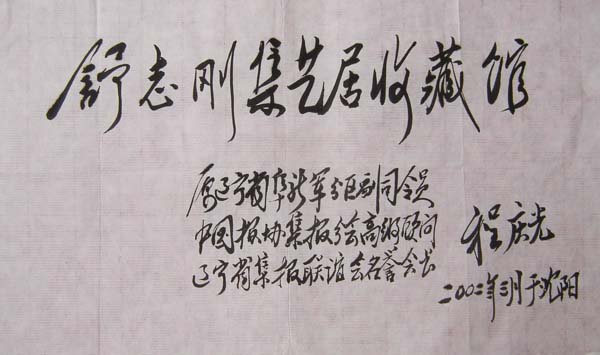 舒志刚集艺居收藏馆
原辽宁省阜新军分区副司令员
中国报协集报分会高级顾问
辽宁省集报联谊会名誉会长
程庆光
二〇〇二年三月于沈阳